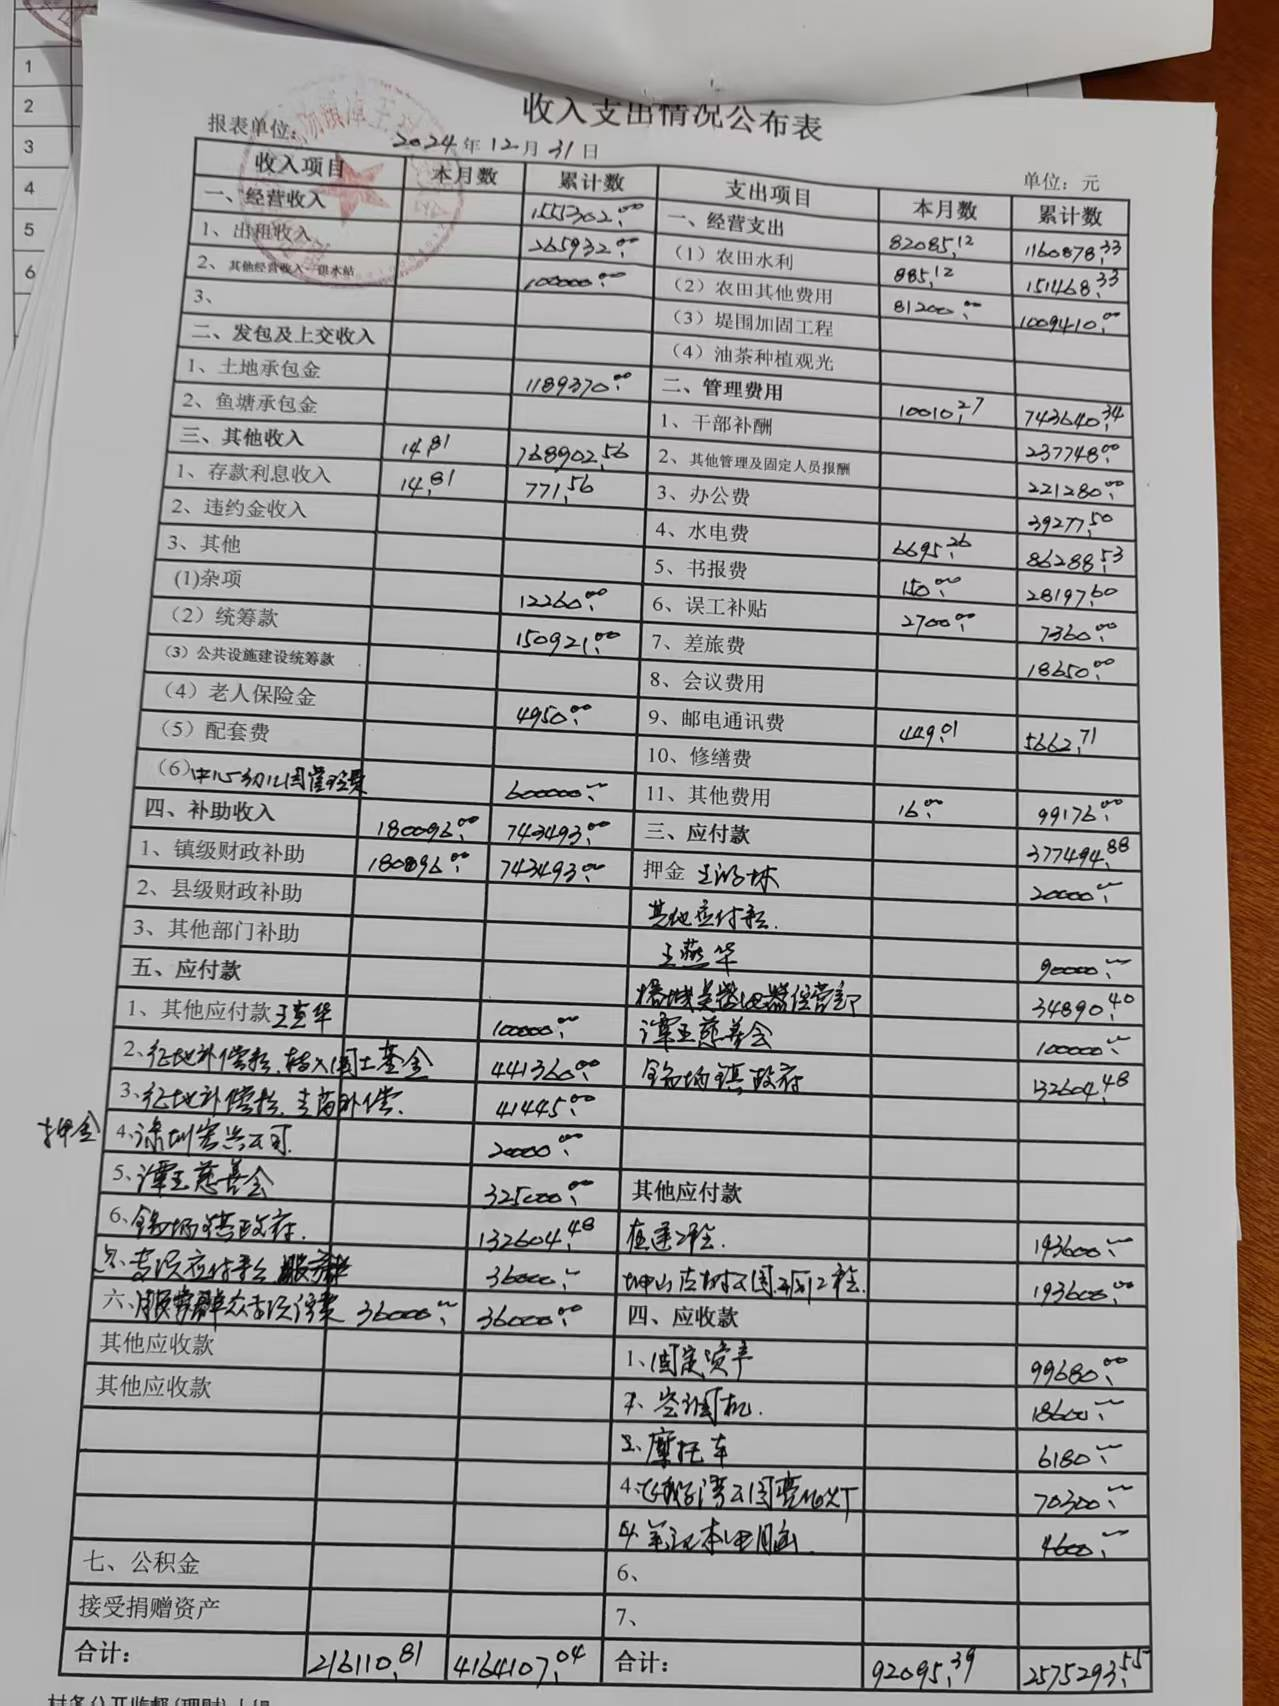 1
2
3
4
5
6
收入支出情况公布表
报表单位:
2024年12月31日
单位：元
收入项目 本月数 累计数 支出项目 本月数 累计数
一、经营收入 1555302.00 一、经营支出 82085.12 1160878.33
1、出租收入 265932.00 （1）农田水利 885.12 151468.33
2、其他经营收入—供水站 100000.00 （2）农田其他费用 81200.00 1009410.00
3、 （3）堤围加固工程
二、发包及上交收入 （4）油茶种植观光
1、土地承包金 1189370.00 二、管理费用 10010.27 743640.34
2、鱼塘承包金 1、干部补酬 237748.00
三、其他收入 14.81 768902.56 2、其他管理及固定人员报酬 221280.00
1、存款利息收入 14.81 771.56 3、办公费 39277.50
2、违约金收入 4、水电费 6695.26 86288.53
3、其他 5、书报费 150.00 28197.60
(1)杂项 12260.00 6、误工补贴 2700.00 7360.00
（2）统筹款 150921.00 7、差旅费 18650.00
（3）公共设施建设统筹款 8、会议费用
（4）老人保险金 4950.00 9、邮电通讯费 449.01 5662.71
（5）配套费 10、修缮费
（6）中心幼儿园 600000.00 11、其他费用 16.00 99176.00
四、补助收入 180096.00 743493.00 三、应付款 377494.88
1、镇级财政补助 180096.00 743493.00 押金 20000.00
2、县级财政补助 其他应付款.
3、其他部门补助 王燕华 90000.00
五、应付款 电器经营部 34890.40
1、其他应付款 100000.00 潭王慈善会 100000.00
2、征地补偿款.转入国土基金 441360.00 锡场镇政府 132604.48
3、征地补偿款.青苗补偿. 41445.00
押金 4、深圳宏兴公司. 20000.00
5、潭王慈善会 325000.00 其他应付款
6、锡场镇政府. 132604.48 在建工程. 193600.00
专项应付款 36000.00 193600.00
六、服务群众专项经费 36000.00 36000.00 四、应收款
其他应收款 1、固定资产 99680.00
其他应收款 2、空调机. 18600.00
3、摩托车 6180.00
4、 70300.00
笔记本电脑. 4600.00
七、公积金 6、
接受捐赠资产 7、
合计: 216110.81 4164107.04 合计: 92095.39 2575293.55